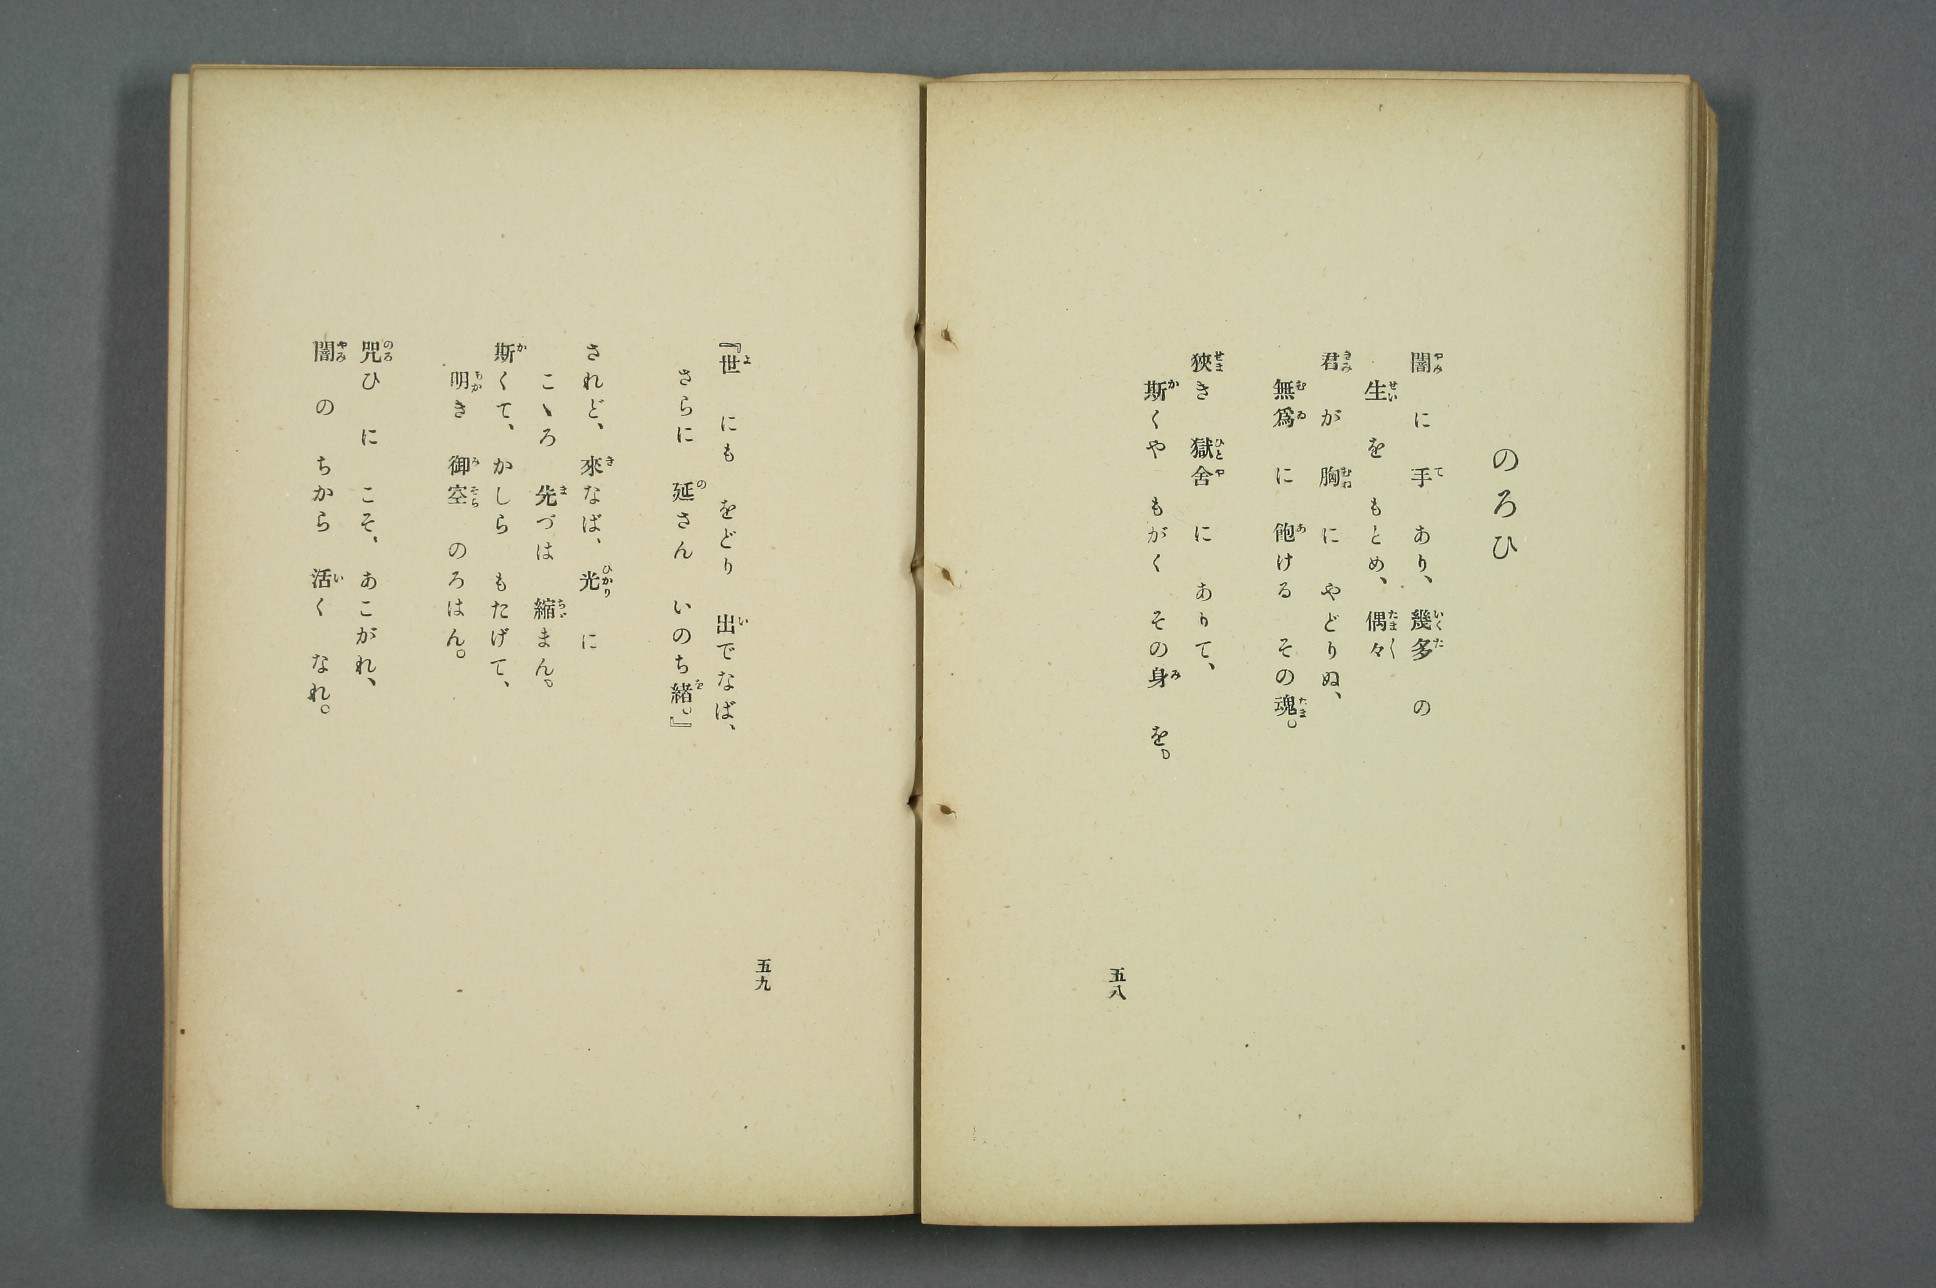 のろひ
闇に　手　あり、幾多　の
生　を　もとめ、偶々
君　が　胸　に　やどりぬ、
無爲　に　飽ける　その魂。
狹き　獄舍　に　ありて、
斯くや　もがく　その身　を。
五八
『世　にも　をどり　出でなば、
さらに　延さん　いのち緒。』
されど、來なば、光　に
こゝろ　先づは　縮まん。
斯くて、かしら　もたげて、
明き　御空　のろはん。
咒ひ　に　こそ、あこがれ、
闇　の　ちから　活く　なれ。
五九